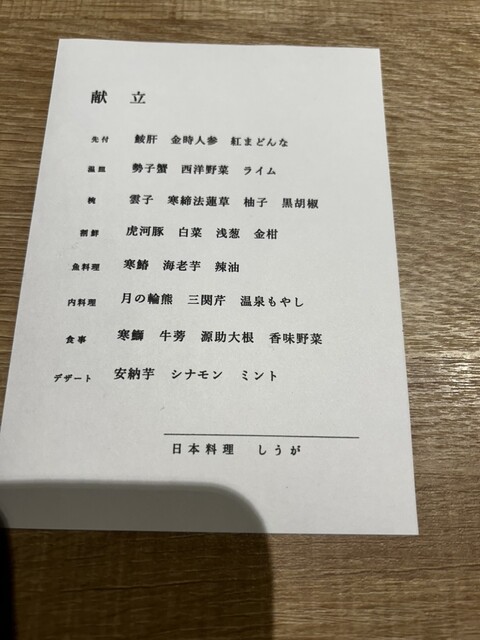 献 立
先付 鮟肝 金時人参 紅まどんな
温菰 勢子蟹 西洋野菜 ライム
椀 雲子 寒締法蓮草 柚子 黒胡椒
割鮮 虎河豚 白菜 浅葱 金柑
魚料理 寒鰆 海老芋 辣油
内料理 月の輪熊 三関芹 温泉もやし
食事 寒鰤 牛蒡 源助大根 香味野菜
デザート 安納芋 シナモン ミント
日本料理 しうが